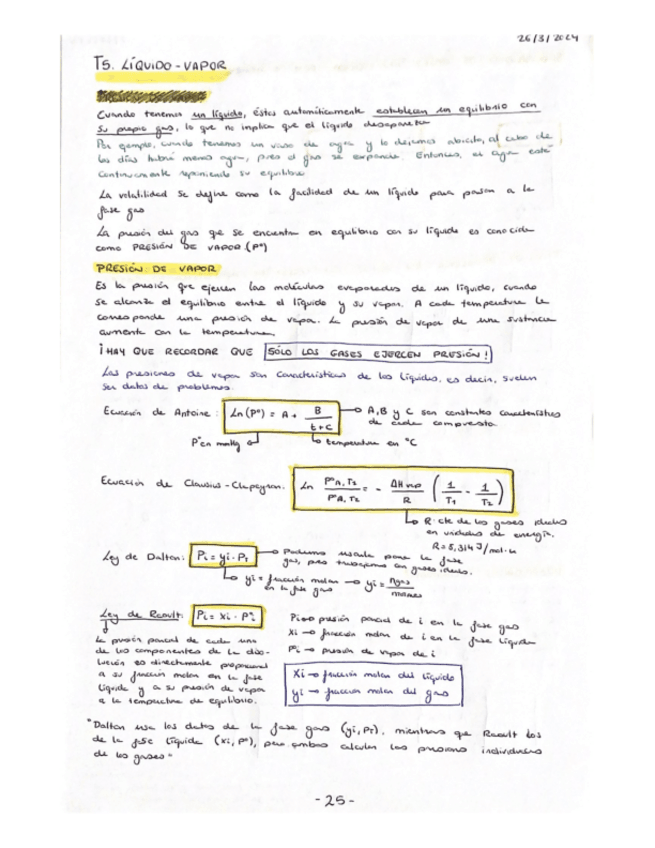 26/3/2024
T5. LÍQUIDO-VAPOR
Cuando tenemos un líquido, éstos automáticamente establecen un equilibrio con
su propio gas, lo que no implica que el líquido desaparezca
Por ejemplo, cuando tenemos un vaso de agua y lo dejamos abierto, al cabo de
los días habrá menos agua, pues el gas se expande. Entonces, el agua está
continuamente reponiendo su equilibrio
La volatilidad se define como la facilidad de un líquido para pasar a la
fase gas
La presión del gas que se encuentra en equilibrio con su líquido es conocida
como PRESIÓN DE VAPOR (Pº)
PRESIÓN DE VAPOR
Es la presión que ejercen las moléculas evaporadas de un líquido, cuando
se alcanza el equilibrio entre el líquido y su vapor. A cada temperatura le
corresponde una presión de vapor. La presión de vapor de una sustancia
aumenta con la temperatura.
¡HAY QUE RECORDAR QUE SÓLO LOS GASES EJERCEN PRESIÓN!
Las presiones de vapor son características de los líquidos, es decir, suelen
ser datos de problemas.
Ecuación de Antoine: Ln(Pº) = A + B / t+C → A, B y C son constantes características
de cada compuesto
Pº en mmHg
temperatura en ºC
Ecuación de Clausius-Clapeyron: Ln PºA,T2 / PºA,T2 = - ΔHvap / R (1/T1 - 1/T2)
R: cte de los gases ideales
en unidades de energía.
R=8,314 J/mol·K
Ley de Dalton: Pi = yi · PT → Podemos usarla para la fase
gas, pues trabajamos con gases ideales.
yi = fracción molar en la fase gas → yi =
Ley de Raoult: Pi = xi · Pºi
La presión parcial de cada uno
de los componentes de la diso-
lución es directamente proporcional
a su fracción molar en la fase
líquida y a su presión de vapor
a la temperatura de equilibrio.
Pi → presión parcial de i en la fase gas
Xi → fracción molar de i en la fase líquida
Pºi → presión de vapor de i
Xi → fracción molar del líquido
yi → fracción molar del gas
"Dalton usa los datos de la fase gas (yi, PT), mientras que Raoult los
de la fase líquida (xi, Pº), pero ambos calculan las presiones individuales
de los gases"
-25-